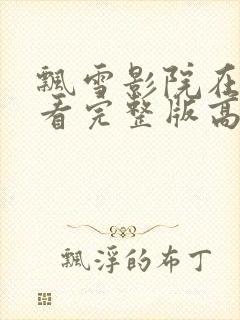 飘雪影院在
看完整版高
飘浮的布丁